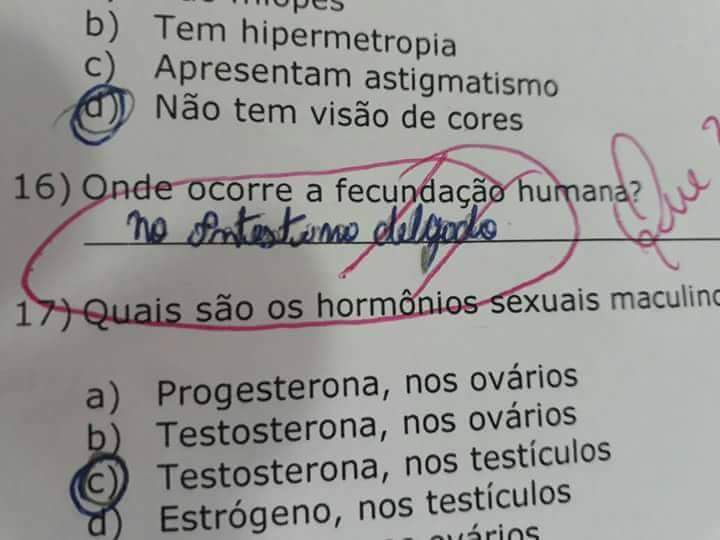 b) Tem hipermetropia
c) Apresentam astigmatismo
d) Não tem visão de cores
16) Onde ocorre a fecundação humana?
no intestino delgado
Que?
17) Quais são os hormônios sexuais maculino
a) Progesterona, nos ovários
b) Testosterona, nos ovários
c) Testosterona, nos testículos
d) Estrógeno, nos testículos
ovários